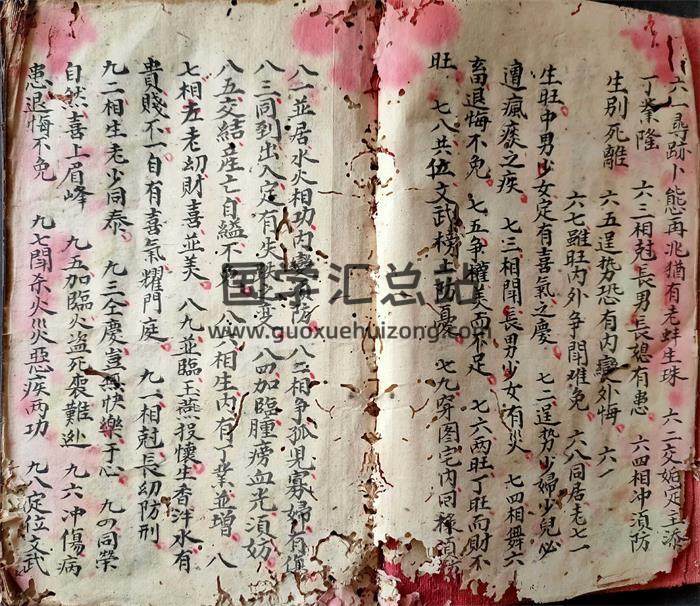 六一尋跡卜態再兆猶有老蚌生珠　六二交始定主添
丁業隆　六三相尅長男長媳有患　六四相冲須防
生別死離　六五逞势恐有内變外悔　六
六七雖旺内外争閗难免　六八同居老七一
生旺中男少女定有喜氣之慶　七二逞势少婦少兒必
遭瘋疾之疾　七三相閗長男少女有災　七四相 六
畜退悔不免　七五争 不足　七六兩旺丁旺而財不
旺　七八共位文武榜上 　七九穿圖宅内同 須防
八一並居水火相功内變 防　八二相争孤見寡婦有
八三同到出入定有失 之 　八四加臨腫痨血光須妨
八五交結産亡自縊不 　八六相生内有丁業並增　八
七相左老幼財喜並美　八九並臨玉燕投懷生香泮水有
貴賤不一自有喜氣耀門庭　九一相尅長幼防刑
九二相生老少同泰　九三全慶豈無快樂于心　九四同榮
自然喜上眉峰　九五加臨火盗死喪難 　九六冲傷病
患退悔不免　九七閗杀火災惡疾两功　九八定位文武
国学汇总站
www.guoxuehuizong.com